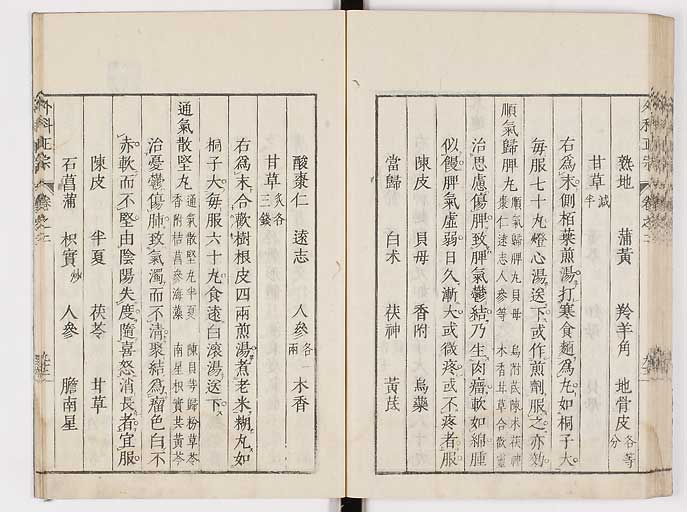 熟地　蒲黃　羚羊角　地骨皮各等分
甘草減半
右爲末側栢葉煎湯打寒食麵爲丸如桐子大
每服七十丸燈心湯送下或作煎劑服之亦効
順氣歸脾丸順氣歸脾丸貝母　烏附芪陳术茯神棗仁遠志人參等　木香甘草合歡靈
治思慮傷脾致脾氣鬱結乃生肉瘤軟如綿腫
似饅脾氣虛弱日久漸大或微疼或不疼者服
陳皮　貝母　香附　烏藥
當歸　白术　茯神　黃芪
外科正宗　卷之二
酸棗仁　遠志　人參各一兩　木香
甘草炙各三錢
右爲末合歡樹根皮四兩煎湯煮老米糊丸如
桐子大每服六十丸食遠白滾湯送下
通氣散堅丸通氣散堅丸半夏　陳貝芎歸粉草苓香附桔菖參海藻　南星枳實共黃芩
治憂鬱傷肺致氣濁而不清聚結爲瘤色白不
赤軟而不堅由陰陽失度隨喜怒消長者宜服
陳皮　半夏　茯苓　甘草
石菖蒲　枳實炒　人參　膽南星
外科正宗　卷之二